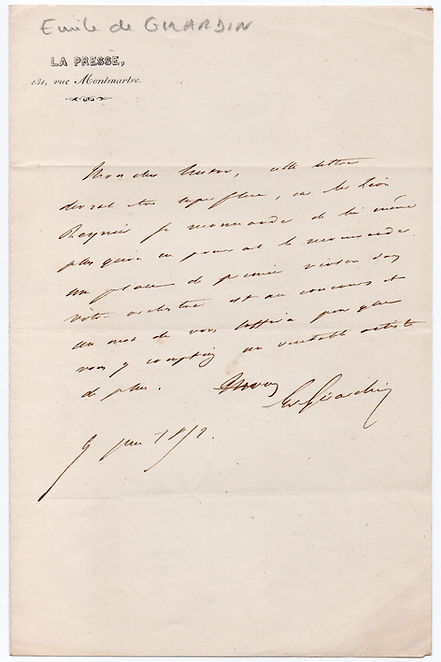 Emile de GIRARDIN
LA PRESSE,
131, rue Montmartre.
Mon cher, cette lettre
devrait être superflue, car
se recommande de lui même
plus qu'on ne pourrait le recommander.
une place de premier violon dans
votre orchestre est au concours et
un mot de vous suffira pour que
vous y comptiez un véritable artiste
de plus.
E. de Girardin
9